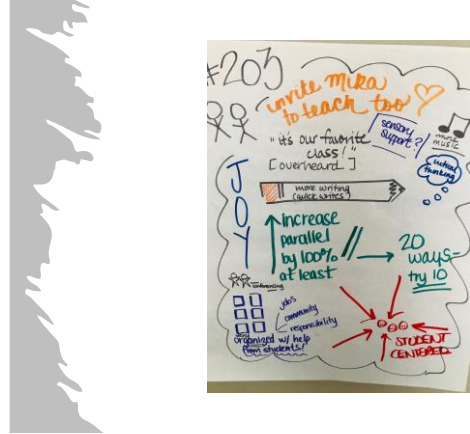 #203
invite Mika
to teach too
"it's our favorite
class!"
[overheard]
sensory
support?
more
music
critical
thinking
JOY
more writing
(quick writes)
increase
parallel
by 100%
at least
20
ways-
try 10
conferencing
jobs
community
responsibility
organized w/ help
from students!
STUDENT
CENTERED